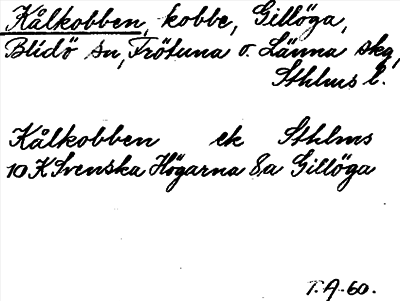 Kålkobben, kobbe, Gillöga,
Blidö sn, Frötuna o. Länna skg,
Sthlms l.
Kålkobben ek Sthlms
10K Svenska Högarna 8a Gillöga
T.A.60.